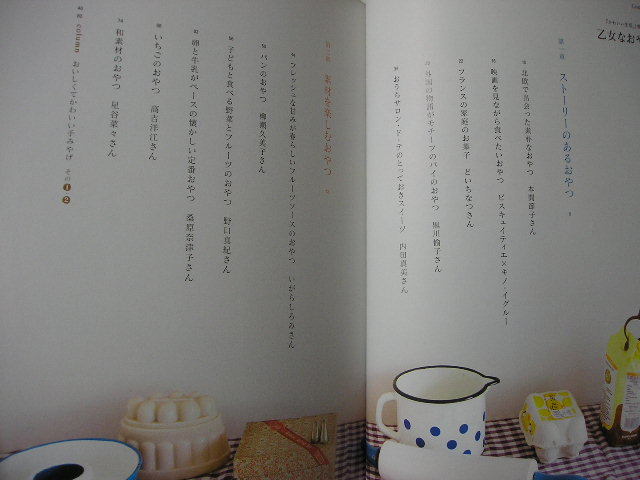 乙女なおや
第一章 ストーリーのあるおやつ
北欧で出会った素朴なおやつ 本間節子さん
映画を見ながら食べたいおやつ ビスキュイティエメキノ・イグルー
フランスの家庭のお菓子 どいちなつさん
外国の物語がモチーフのパイのおやつ 黒川愉子さん
おうちサロン・ドーテのとっておきスイーツ 内田真美さん
第二章 素材を楽しむおやつ
フレッシュな甘みが春らしいフルーツソースのおやつ いがらしろみさん
パンのおやつ 柳瀬久美子さん
子どもと食べる野菜とフルーツのおやつ 野口真紀さん
卵と牛乳がベースの懐かしい定番おやつ 桑原奈津子さん
いちごのおやつ 高吉洋江さん
和素材のおやつ 星谷菜々さん
column おいしくてかわいい手みやげ その1 2